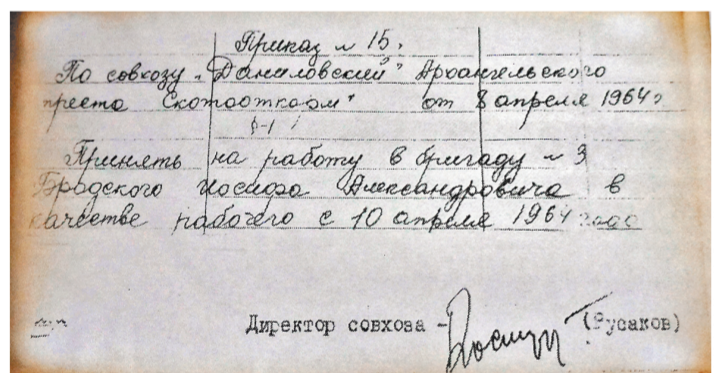 Приказ № 15.
По совхозу "Даниловский" Архангельского
треста "Скотооткорм" от 8 апреля 1964г
§-1
Принять на работу в бригаду № 3
Бродского Иосифа Александровича в
качестве рабочего с 10 апреля 1964 года
Директор совхоза - (Русаков)